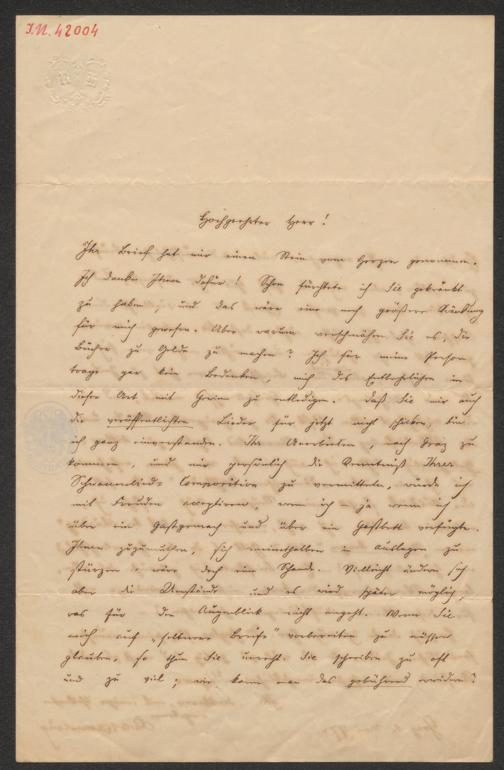 I.N. 42004
Hochgeehrter Herr!
Ihr Brief hat mir einen Stein vom Herzen genommen.
Ich danke Ihnen dafür! Schon fürchtete ich Sie gekränkt
zu haben, und das wäre eine noch größere Kränkung
für mich gewesen. Aber warum verschmähen Sie es, die
Bücher zu Gelde zu machen? Ich für meine Person
trage gar kein Bedenken, mich des Entbehrlichen in
dieser Art mit Gewinn zu entledigen. Daß Sie mir auch
die veröffentlichten Lieder für jetzt nicht schicken, bin
ich ganz einverstanden. Ihr Anerbieten, nach Graz zu
kommen, und mir persönlich die Kenntniß Ihrer
Schwanenlied-Composition zu vermitteln, würde ich
mit Freuden acceptiren, wenn ich – ja wenn ich
über ein Gastgemach und über ein Gastbett verfügte.
Ihnen zuzumuthen, sich meinethalben in Auslagen zu
stürzen, wäre doch eine Schande. Vielleicht ändern sich
aber die Umstände und es wird später möglich,
was für den Augenblick nicht angeht. Wenn Sie
mich auf „seltnere Briefe“ vorbereiten zu müssen
glauben, so thun Sie unrecht. Sie schreiben zu oft
und zu viel; wie kann man das gebührend